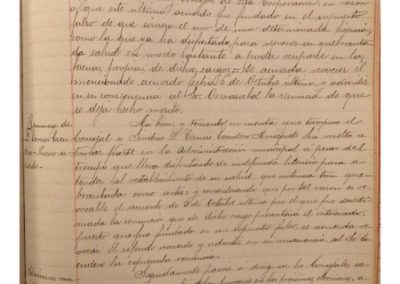 que este último acuerdo ha fundado en el supuesto
falso de que sirviera el uso de una determinada licencia,
como la que ya ha disfrutado, para reponer su quebranta
da salud en modo bastante a poder ocuparse en las
faenas propias de dicho cargo = Se acuerda revocar el
mencionado acuerdo fecha 5 de Octubre último, y admitir
en su consecuencia al Sr. la renuncia de que
se deja hecho mérito.
Renuncia de
D. Tomás
Tambien, y teniendo en cuenta que tampoco el
Concejal y Síndico D. Tomás ha vuelto á
tomar parte en la Administracion municipal a pesar del
tiempo que lleva disfrutando de indefinida licencia para a
tender al restablecimiento de su salud, que continúa tan que
brantada como antes; y considerando que por tal razon es re
vocable el acuerdo de 5 de Octubre último por el que fue desesti
mada la renuncia que de dicho cargo presentara el interesado,
puesto que fue fundado en un supuesto falso, se acuerda re
vocar el referido acuerdo y admitir, en su consecuencia, al Sr.
la expresada renuncia.
Seguidamente pasose a designar los Concejales
en las próximas elecciones, a